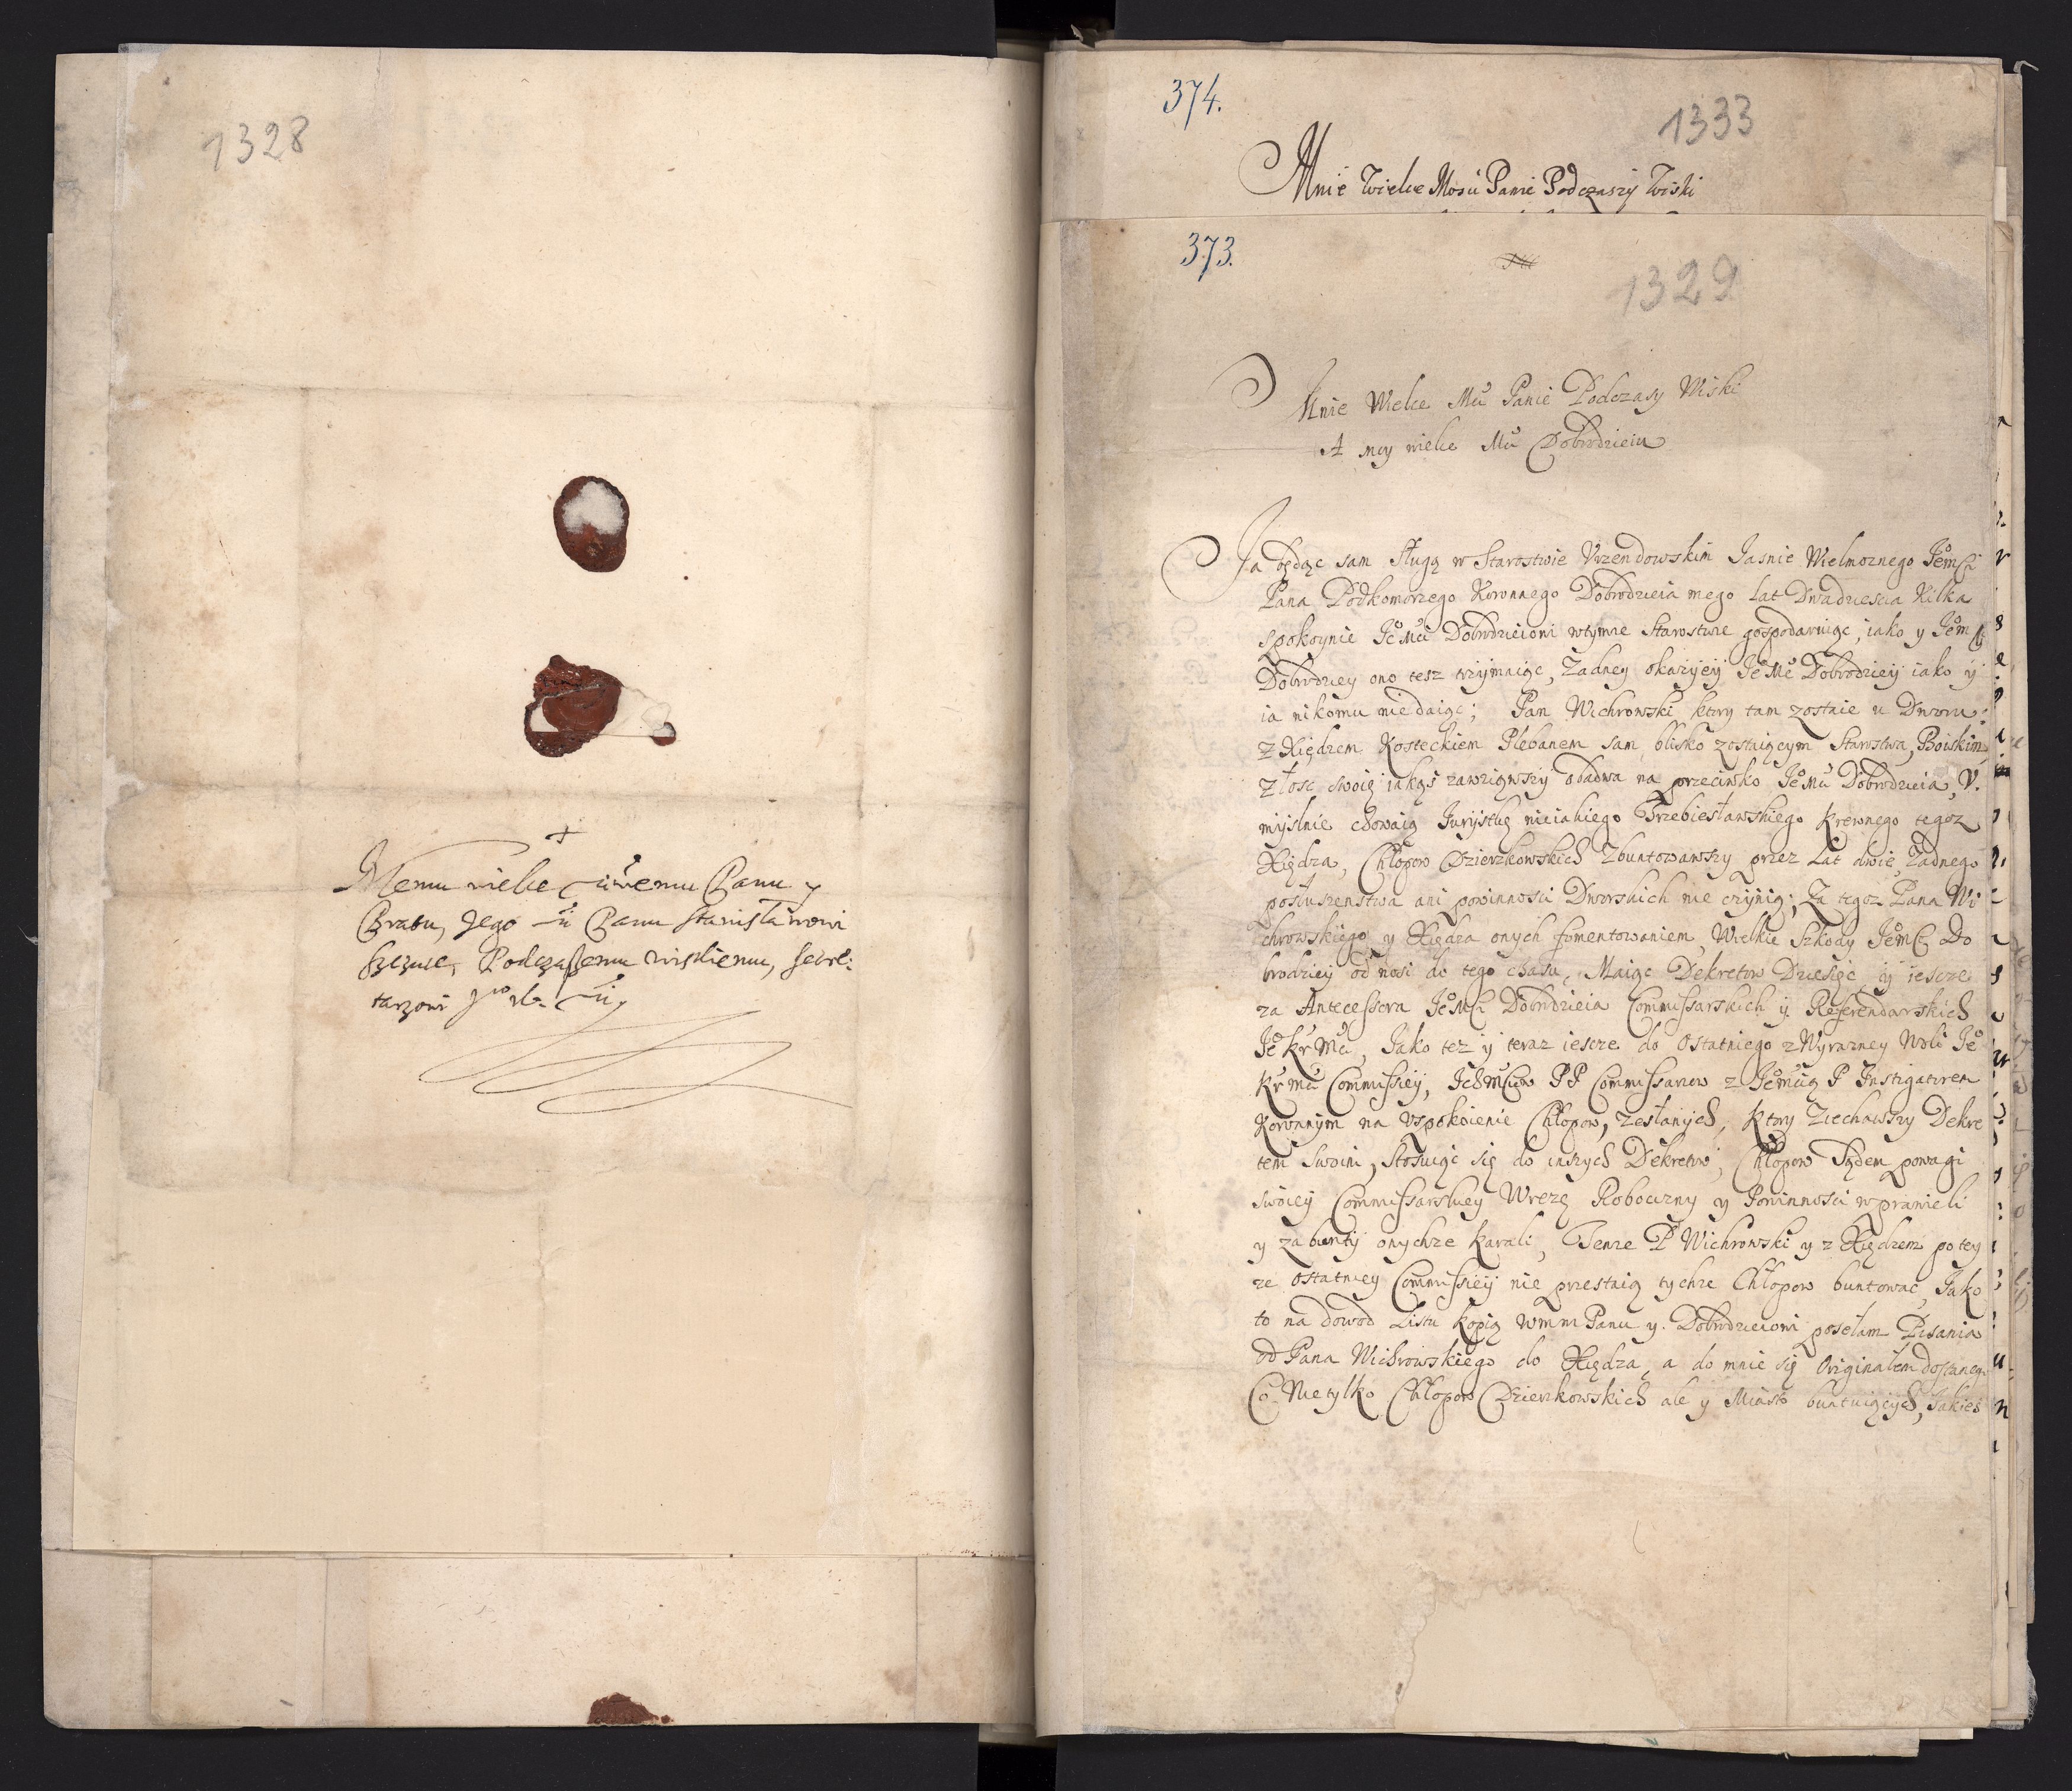 1328
Memu wielce Panu y
Bratu, Jego Panu Stanisławowi
Szczuce, Podczaszemu wiskiemu, Secre:
tarzowi
374.
1333
Mnie Wielce Mosci Panie Podczaszy Wiski
373.
1329
Mnie Wielce Mċi Panie Podczasy Wiski
A mcy wielce Mċi Dobrodzieiu
Ja będąc sam sługą w Starostwie Vrzendowskim Jasnie Wielmoznego JeoMci
Pana Podkomorzego Koronnego Dobrodzieia mego Lat Dwadziescia Kilka
spokoynie Jeo Mci Dobrodzieiowi wtymze Starostwie gospodaruiąc, iako y Jeom
Dobrodziey ono tesz trzymaiąc, Zadney okazyiey Jeo Mc Dobrodzieiy iako y
ia nikomu niedaiąc; Pan Wichrowski ktory tam zostaie u Dworu
z Xiędzem Kosteckiem Plebanem sam blisko zostaiącym Starostwa, Boiskim
złosc swoię iakąś zawziąwszy obadwa na przeciwko Jeo Mci Dobrodzieia, V.
myslnie chowaią Jurystę nieiakiego Trzebiesławskiego Krewnego tegoz
Xiędza, Chłopow Dzierzkowskich Zbuntowawszy przez Lat dwie Zadnego
posłuszenstwa ani powinnosci Dworskich nie czynią; Za tegoz Pana Wi
chrowskiego y Xiędza onych fomentowaniem, Wielkie Szkody JeoMc Do
brodziey od nosi do tego czasu, Maiąc Dekretow Dziesięc y iescze
za Antecessora JeoMci Dobrodzieia Commissarskich y Referendarskich
Jeo Kr Mci, Jako tez y teraz iescze do ostatniego z Wyrazney Woli Jeo
Kr mci Commissiey, Ichmciow PP Commissarzow z Jeomcią P Instigatorem
Koronnym na uspokoienie Chłopow, zesłanych, Ktory Ziechawszy Dekre
tem Swoim, stosuiąc się do inszych Dekretow, Chłopow Sądem powagi
swoiey Commissarskiey Wrezę Roboczny y Powinnosci wprawieli
y za bunty onychze karali, Tenze P Wichrowski y z Xiędzem po tey
ze ostatniey Commissiey nie przestaią tychze Chłopow buntowac, Jako
to na dowod Listu kopią wmm Panu y Dobrodzieiowi posełam Pisania
od Pana Wichrowskiego do Xiędza, a do mnie się Originałem dostanego
Co Nietylko Chłopow Dzierzkowskich ale y Miasto buntuiących, Jakies